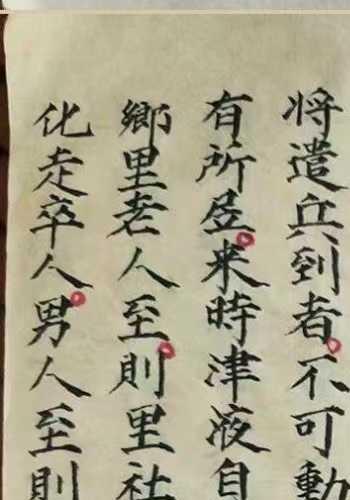 将遣兵到者不可動
有所来時津液自
鄉里老人至則里社
化走卒人男人至則